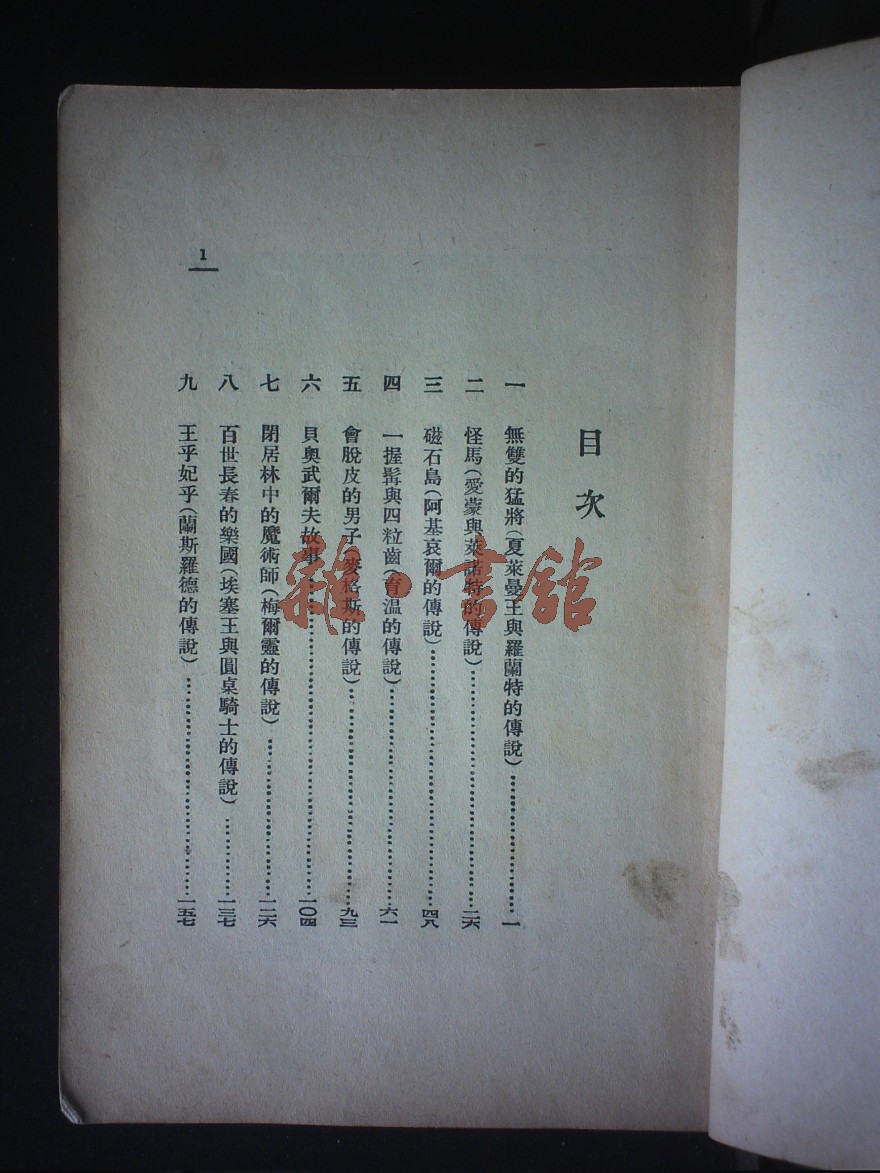 目次
一 無雙的猛將(夏萊曼王與羅蘭特的傳說)……………………一
二 怪馬(愛蒙與萊諾特的傳說)……………………二六
三 磁石島(阿基哀爾的傳說)……………………四八
四 一握髯與四粒齒(育温的傳說)……………………六一
五 會脫皮的男子(麥格斯的傳說)……………………九三
六 貝奧武爾夫故事……………………一〇四
七 閉居林中的魔術師(梅爾靈的傳說)……………………一二六
八 百世長春的樂國(埃塞王與圓桌騎士的傳說)……………………一三七
九 王乎妃乎(蘭斯羅德的傳說)……………………一五七
1
雜·書館